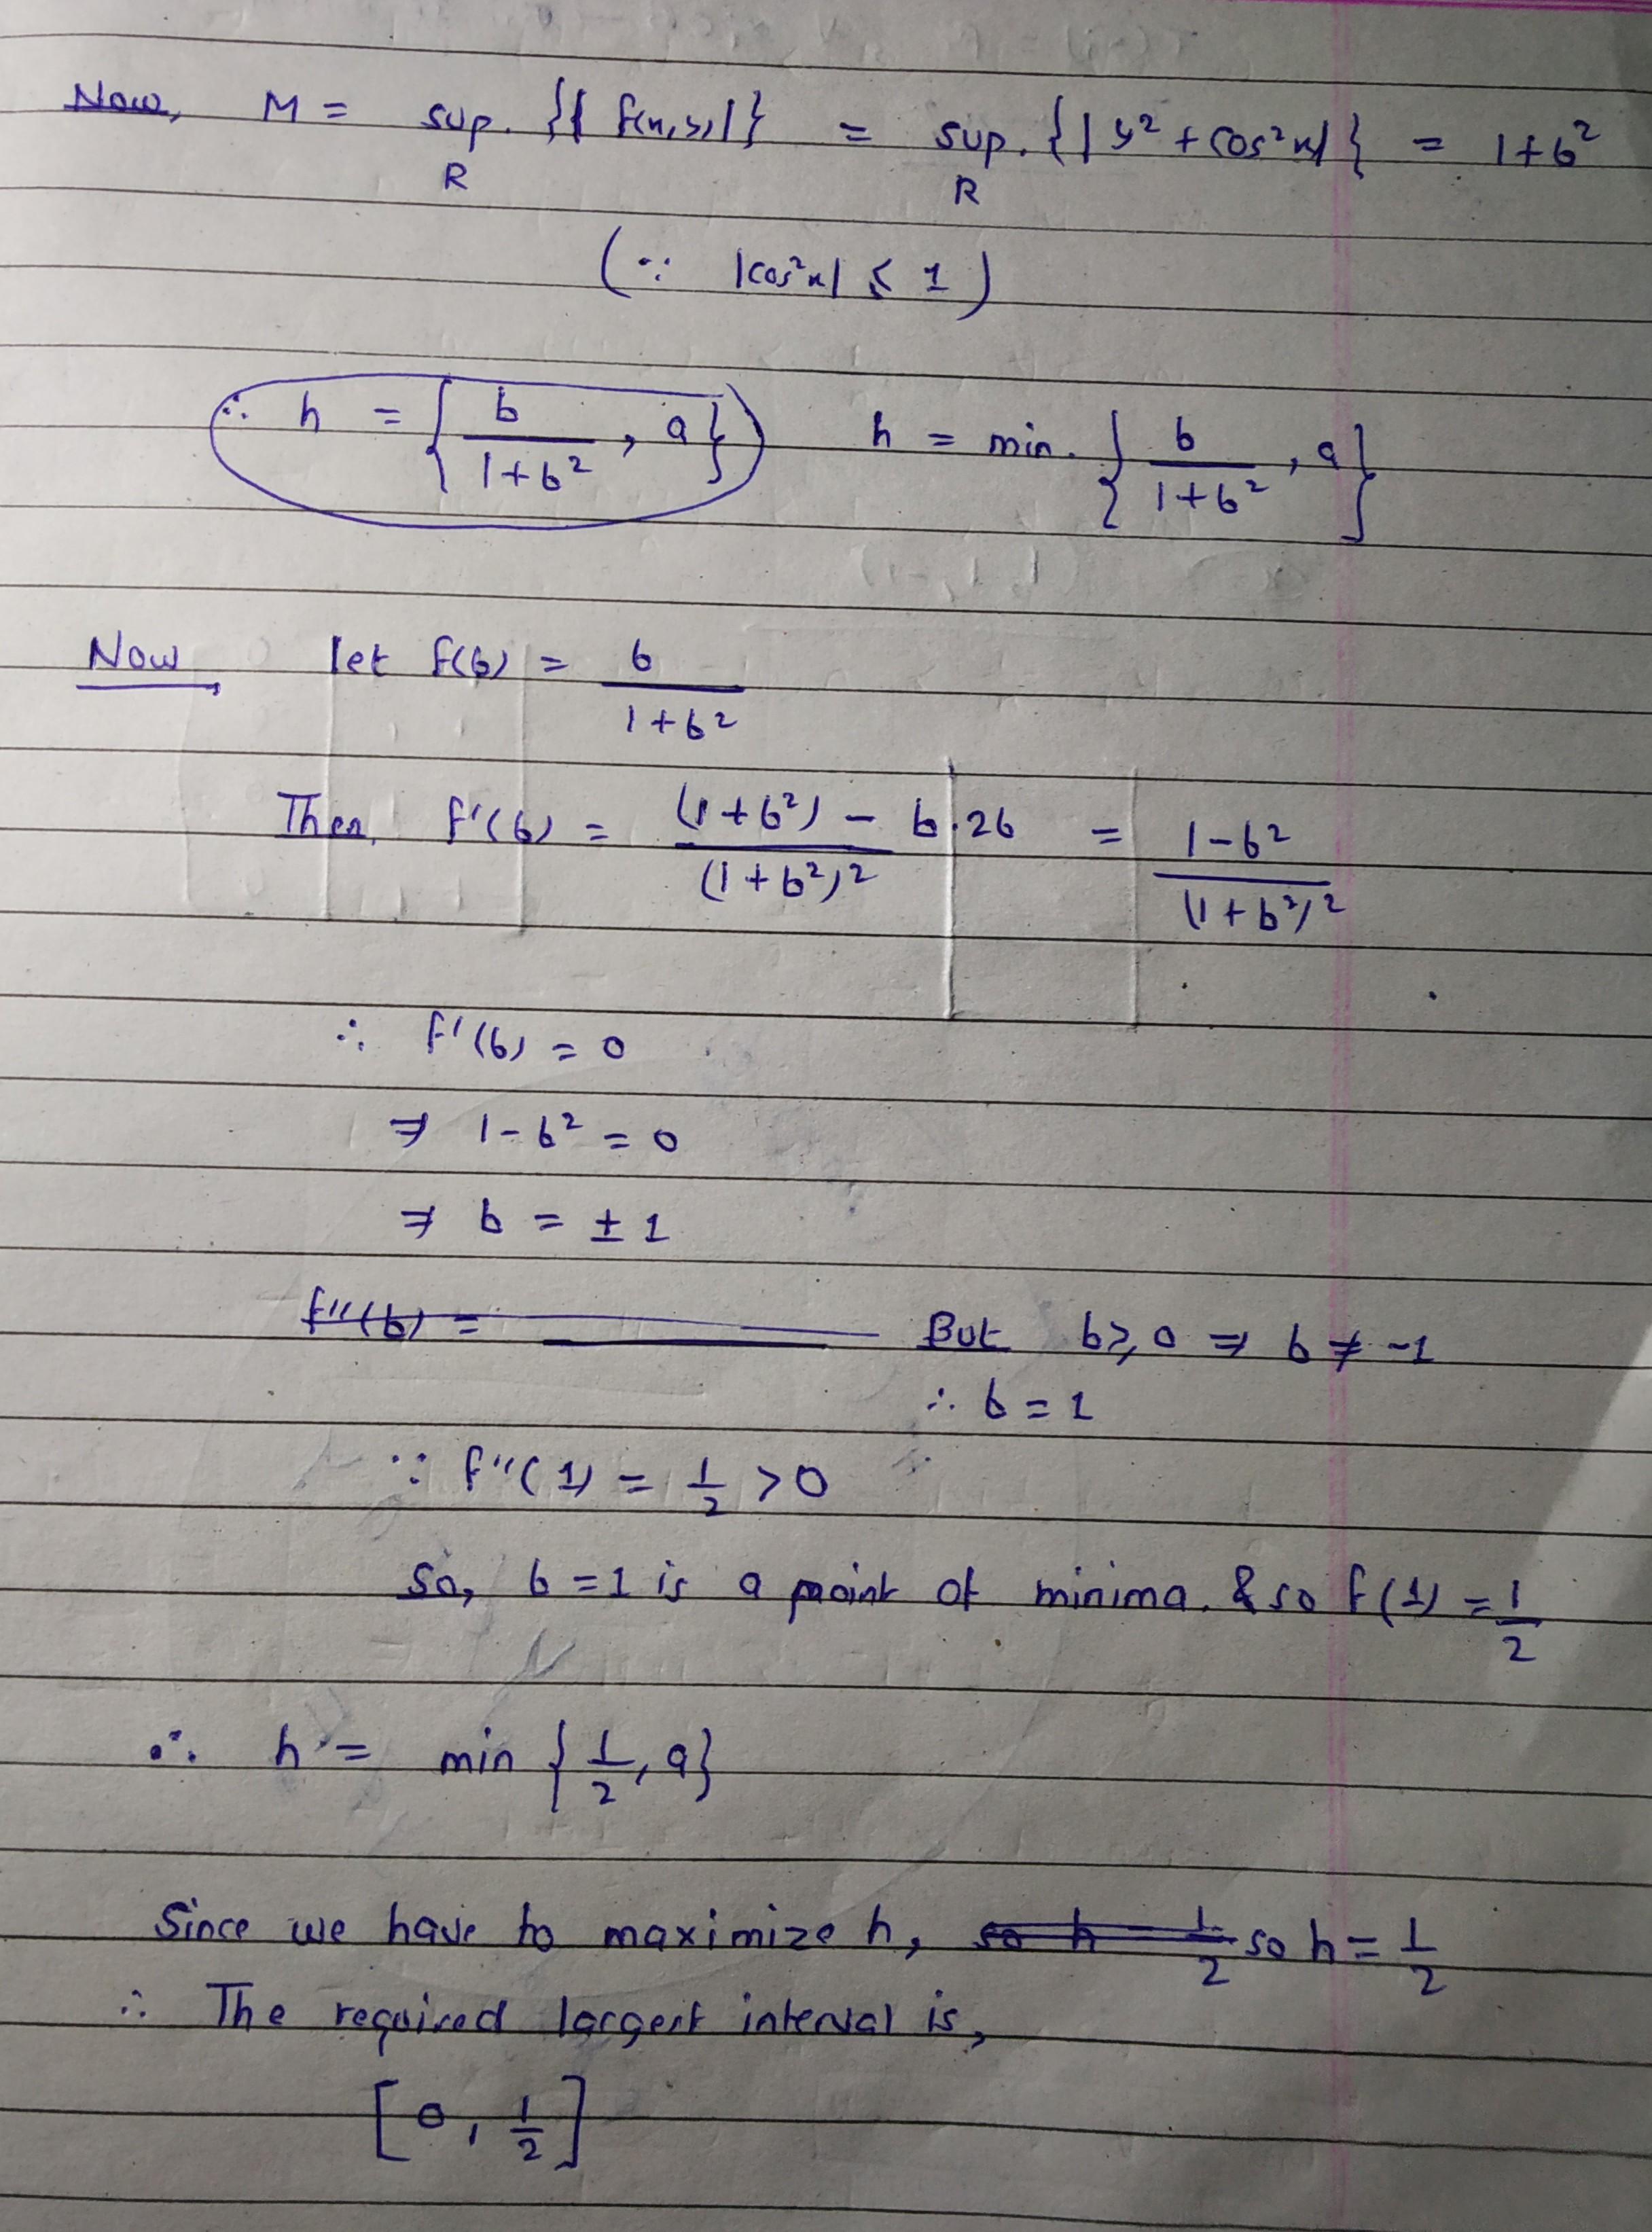 Now, M = sup. {| f(x,y)|} = sup. {| y² + cos²x|} = 1+b²
R R
(∵ |cos²x| ≤ 1)
∴ h = { b/(1+b²) , a } h = min. { b/(1+b²) , a }
Now, let f(b) = b/(1+b²)
Then, f'(b) = ((1+b²) - b.2b)/(1+b²)² = (1-b²)/(1+b²)²
∴ f'(b) = 0
⇒ 1-b² = 0
⇒ b = ± 1
f''(b) = But b≥0 ⇒ b ≠ -1
∴ b = 1
∵ f''(1) = 1/2 > 0
So, b=1 is a point of minima. & so f(1) = 1/2
∴ h = min {1/2, a}
Since we have to maximize h, so h = 1/2 so h = 1/2
∴ The required largest interval is,
[0, 1/2]